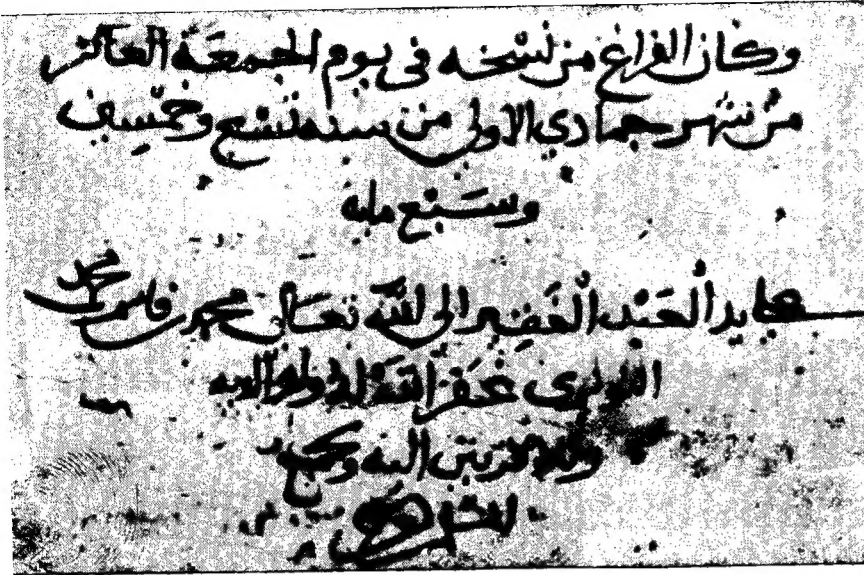 وكان الفراغ من نسخه في يوم الجمعة العاشر
من شهر جمادي الاولى من سنه تسع وخمسين
وسبع مايه
على يد العبد الفقير الى الله تعالى محمد بن قاسم بن محمد
غفر الله له ولوالديه
اليه ولجميع